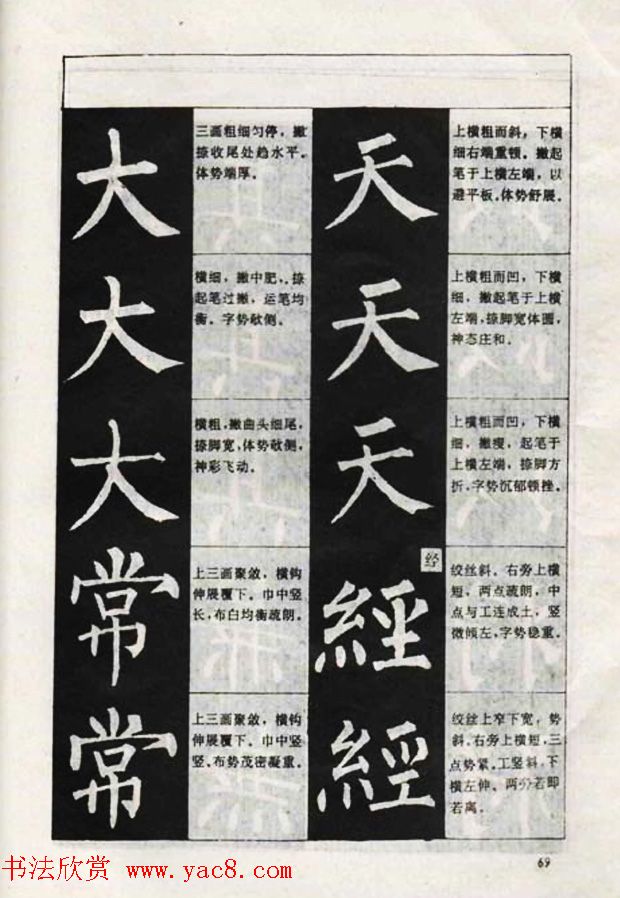 大
三画粗细匀停，撇
捺收尾处趋水平。
体势端厚。
大
横细，撇中肥，捺
起笔过撇，运笔均
衡。字势欹侧。
大
横粗，撇曲头细尾，
捺脚宽，体势欹侧，
神彩飞动。
常
上三画聚敛，横钩
伸展覆下。巾中竖
长，布白均衡疏朗。
常
上三画聚敛，横钩
伸展覆下。巾中竖
竖、布势茂密凝重。
天
上横粗而斜，下横
细右端重顿。撇起
笔于上横左端，以
避平板。体势舒展。
天
上横粗而凹，下横
细，撇起笔于上横
左端，捺脚宽体圆，
神态庄和。
天
上横粗而凹，下横
细，撇瘦，起笔于
上横左端，捺脚方
折，字势沉郁顿挫。
经
經
绞丝斜。右旁上横
短，两点疏朗，中
点与工连成土，竖
微倾左，字势稳重。
經
绞丝上窄下宽，势
斜。右旁上横短，三
点势紧。工竖斜，下
横左伸。两分若即
若离。
69
书法欣赏 www.yac8.com